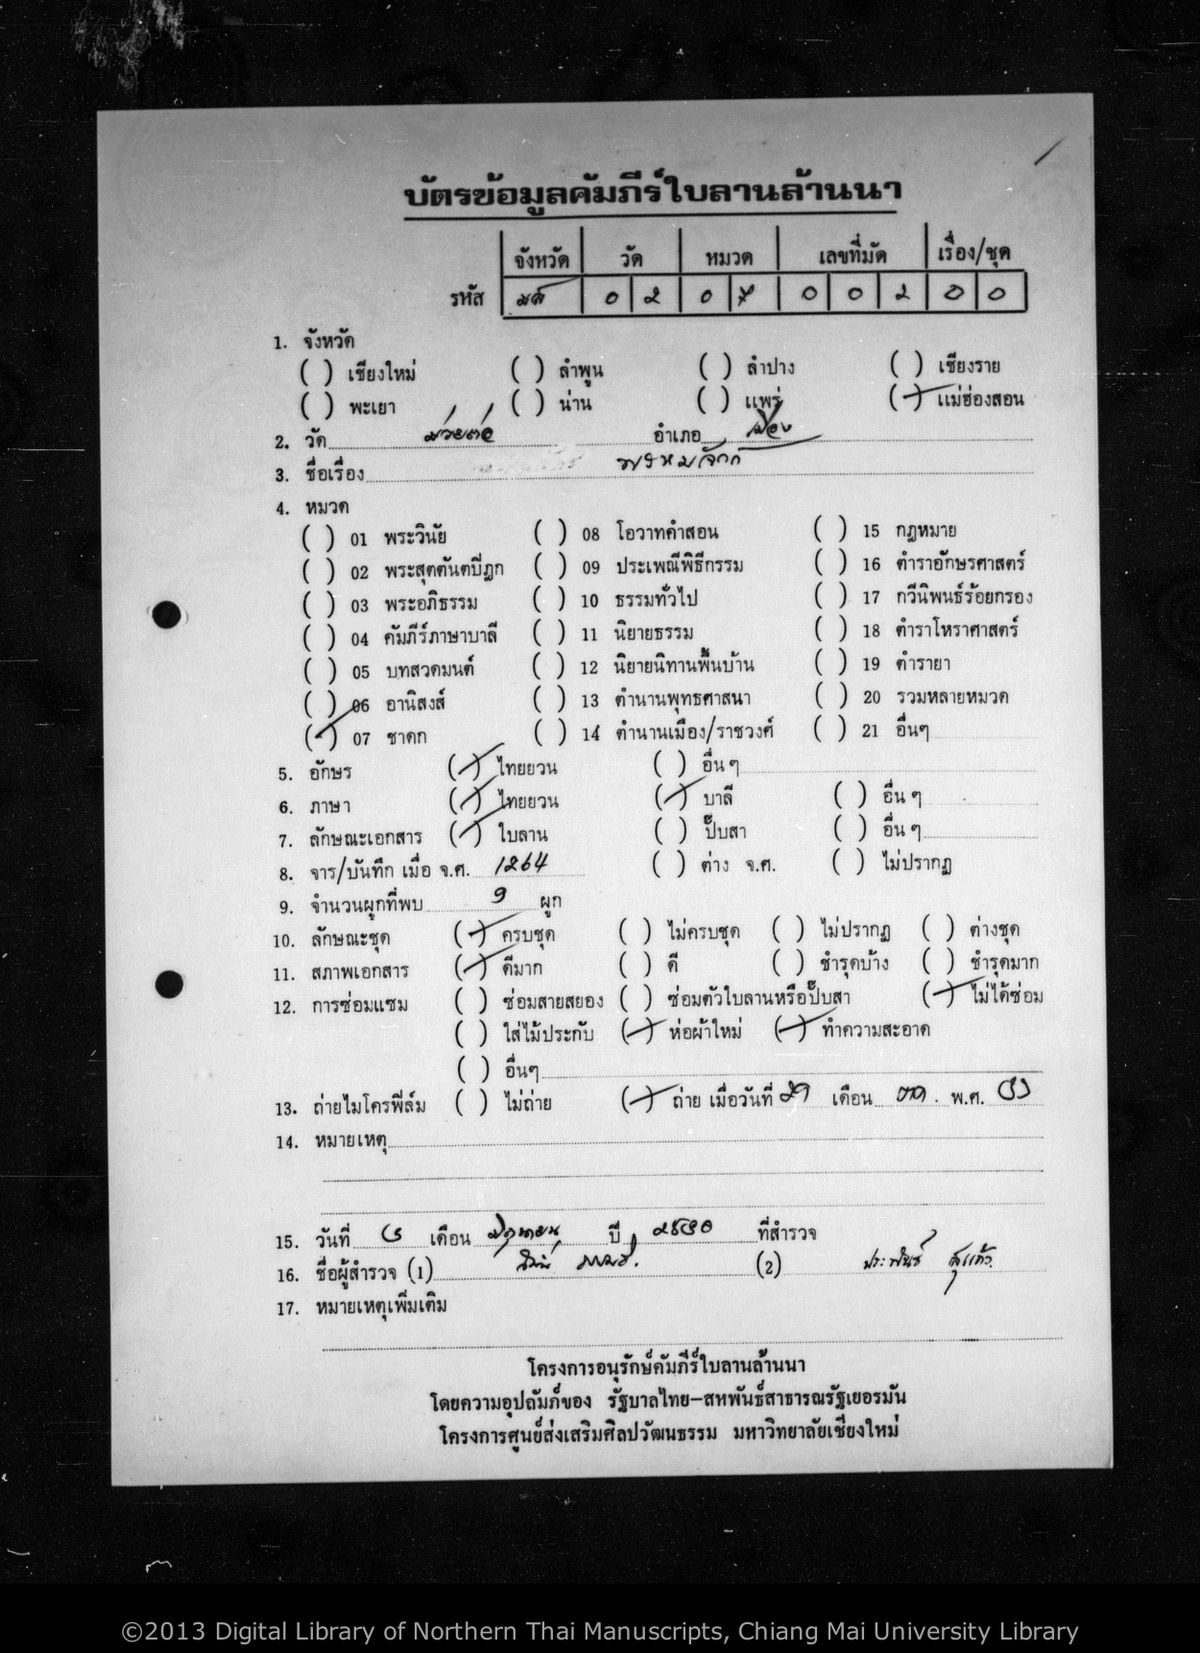 บัตรข้อมูลคัมภีร์ใบลานล้านนา
จังหวัด วัด หมวด เลขที่มัด เรื่อง/ชุด
รหัส มส 0 2 0 7 0 0 2 0 0
1. จังหวัด
( ) เชียงใหม่ ( ) ลำพูน ( ) ลำปาง ( ) เชียงราย
( ) พะเยา ( ) น่าน ( ) แพร่ (/) แม่ฮ่องสอน
2. วัด ม่วยต่อ อำเภอ เมือง
3. ชื่อเรื่อง พรหมจักก์
4. หมวด
( ) 01 พระวินัย ( ) 08 โอวาทคำสอน ( ) 15 กฎหมาย
( ) 02 พระสุตตันตปิฎก ( ) 09 ประเพณีพิธีกรรม ( ) 16 ตำราอักษรศาสตร์
( ) 03 พระอภิธรรม ( ) 10 ธรรมทั่วไป ( ) 17 กวีนิพนธ์ร้อยกรอง
( ) 04 คัมภีร์ภาษาบาลี ( ) 11 นิยายธรรม ( ) 18 ตำราโหราศาสตร์
( ) 05 บทสวดมนต์ ( ) 12 นิยายนิทานพื้นบ้าน ( ) 19 ตำรายา
( ) 06 อานิสงส์ ( ) 13 ตำนานพุทธศาสนา ( ) 20 รวมหลายหมวด
(/) 07 ชาดก ( ) 14 ตำนานเมือง/ราชวงศ์ ( ) 21 อื่นๆ
5. อักษร (/) ไทยยวน ( ) อื่นๆ
6. ภาษา (/) ไทยยวน (/) บาลี ( ) อื่นๆ
7. ลักษณะเอกสาร (/) ใบลาน ( ) ปั๊บสา ( ) อื่นๆ
8. จาร/บันทึก เมื่อ จ.ศ. 1264 ( ) ต่าง จ.ศ. ( ) ไม่ปรากฏ
9. จำนวนผูกที่พบ 9 ผูก
10. ลักษณะชุด (/) ครบชุด ( ) ไม่ครบชุด ( ) ไม่ปรากฏ ( ) ต่างชุด
11. สภาพเอกสาร (/) ดีมาก ( ) ดี ( ) ชำรุดบ้าง ( ) ชำรุดมาก
12. การซ่อมแซม ( ) ซ่อมสายสยอง ( ) ซ่อมตัวใบลานหรือปั๊บสา (/) ไม่ได้ซ่อม
( ) ใส่ไม้ประกับ (/) ห่อผ้าใหม่ (/) ทำความสะอาด
( ) อื่นๆ
13. ถ่ายไมโครฟิล์ม ( ) ไม่ถ่าย (/) ถ่าย เมื่อวันที่ เดือน ตค. พ.ศ. ๓๑
14. หมายเหตุ
15. วันที่ ๘ เดือน มิถุนายน ปี ๒๕๓๐ ที่สำรวจ
16. ชื่อผู้สำรวจ (1) (2) ประพันธ์ สุแก้ว
17. หมายเหตุเพิ่มเติม
โครงการอนุรักษ์คัมภีร์ใบลานล้านนา
โดยความอุปถัมภ์ของ รัฐบาลไทย-สหพันธ์สาธารณรัฐเยอรมัน
โครงการศูนย์ส่งเสริมศิลปวัฒนธรรม มหาวิทยาลัยเชียงใหม่
©2013 Digital Library of Northern Thai Manuscripts, Chiang Mai University Library